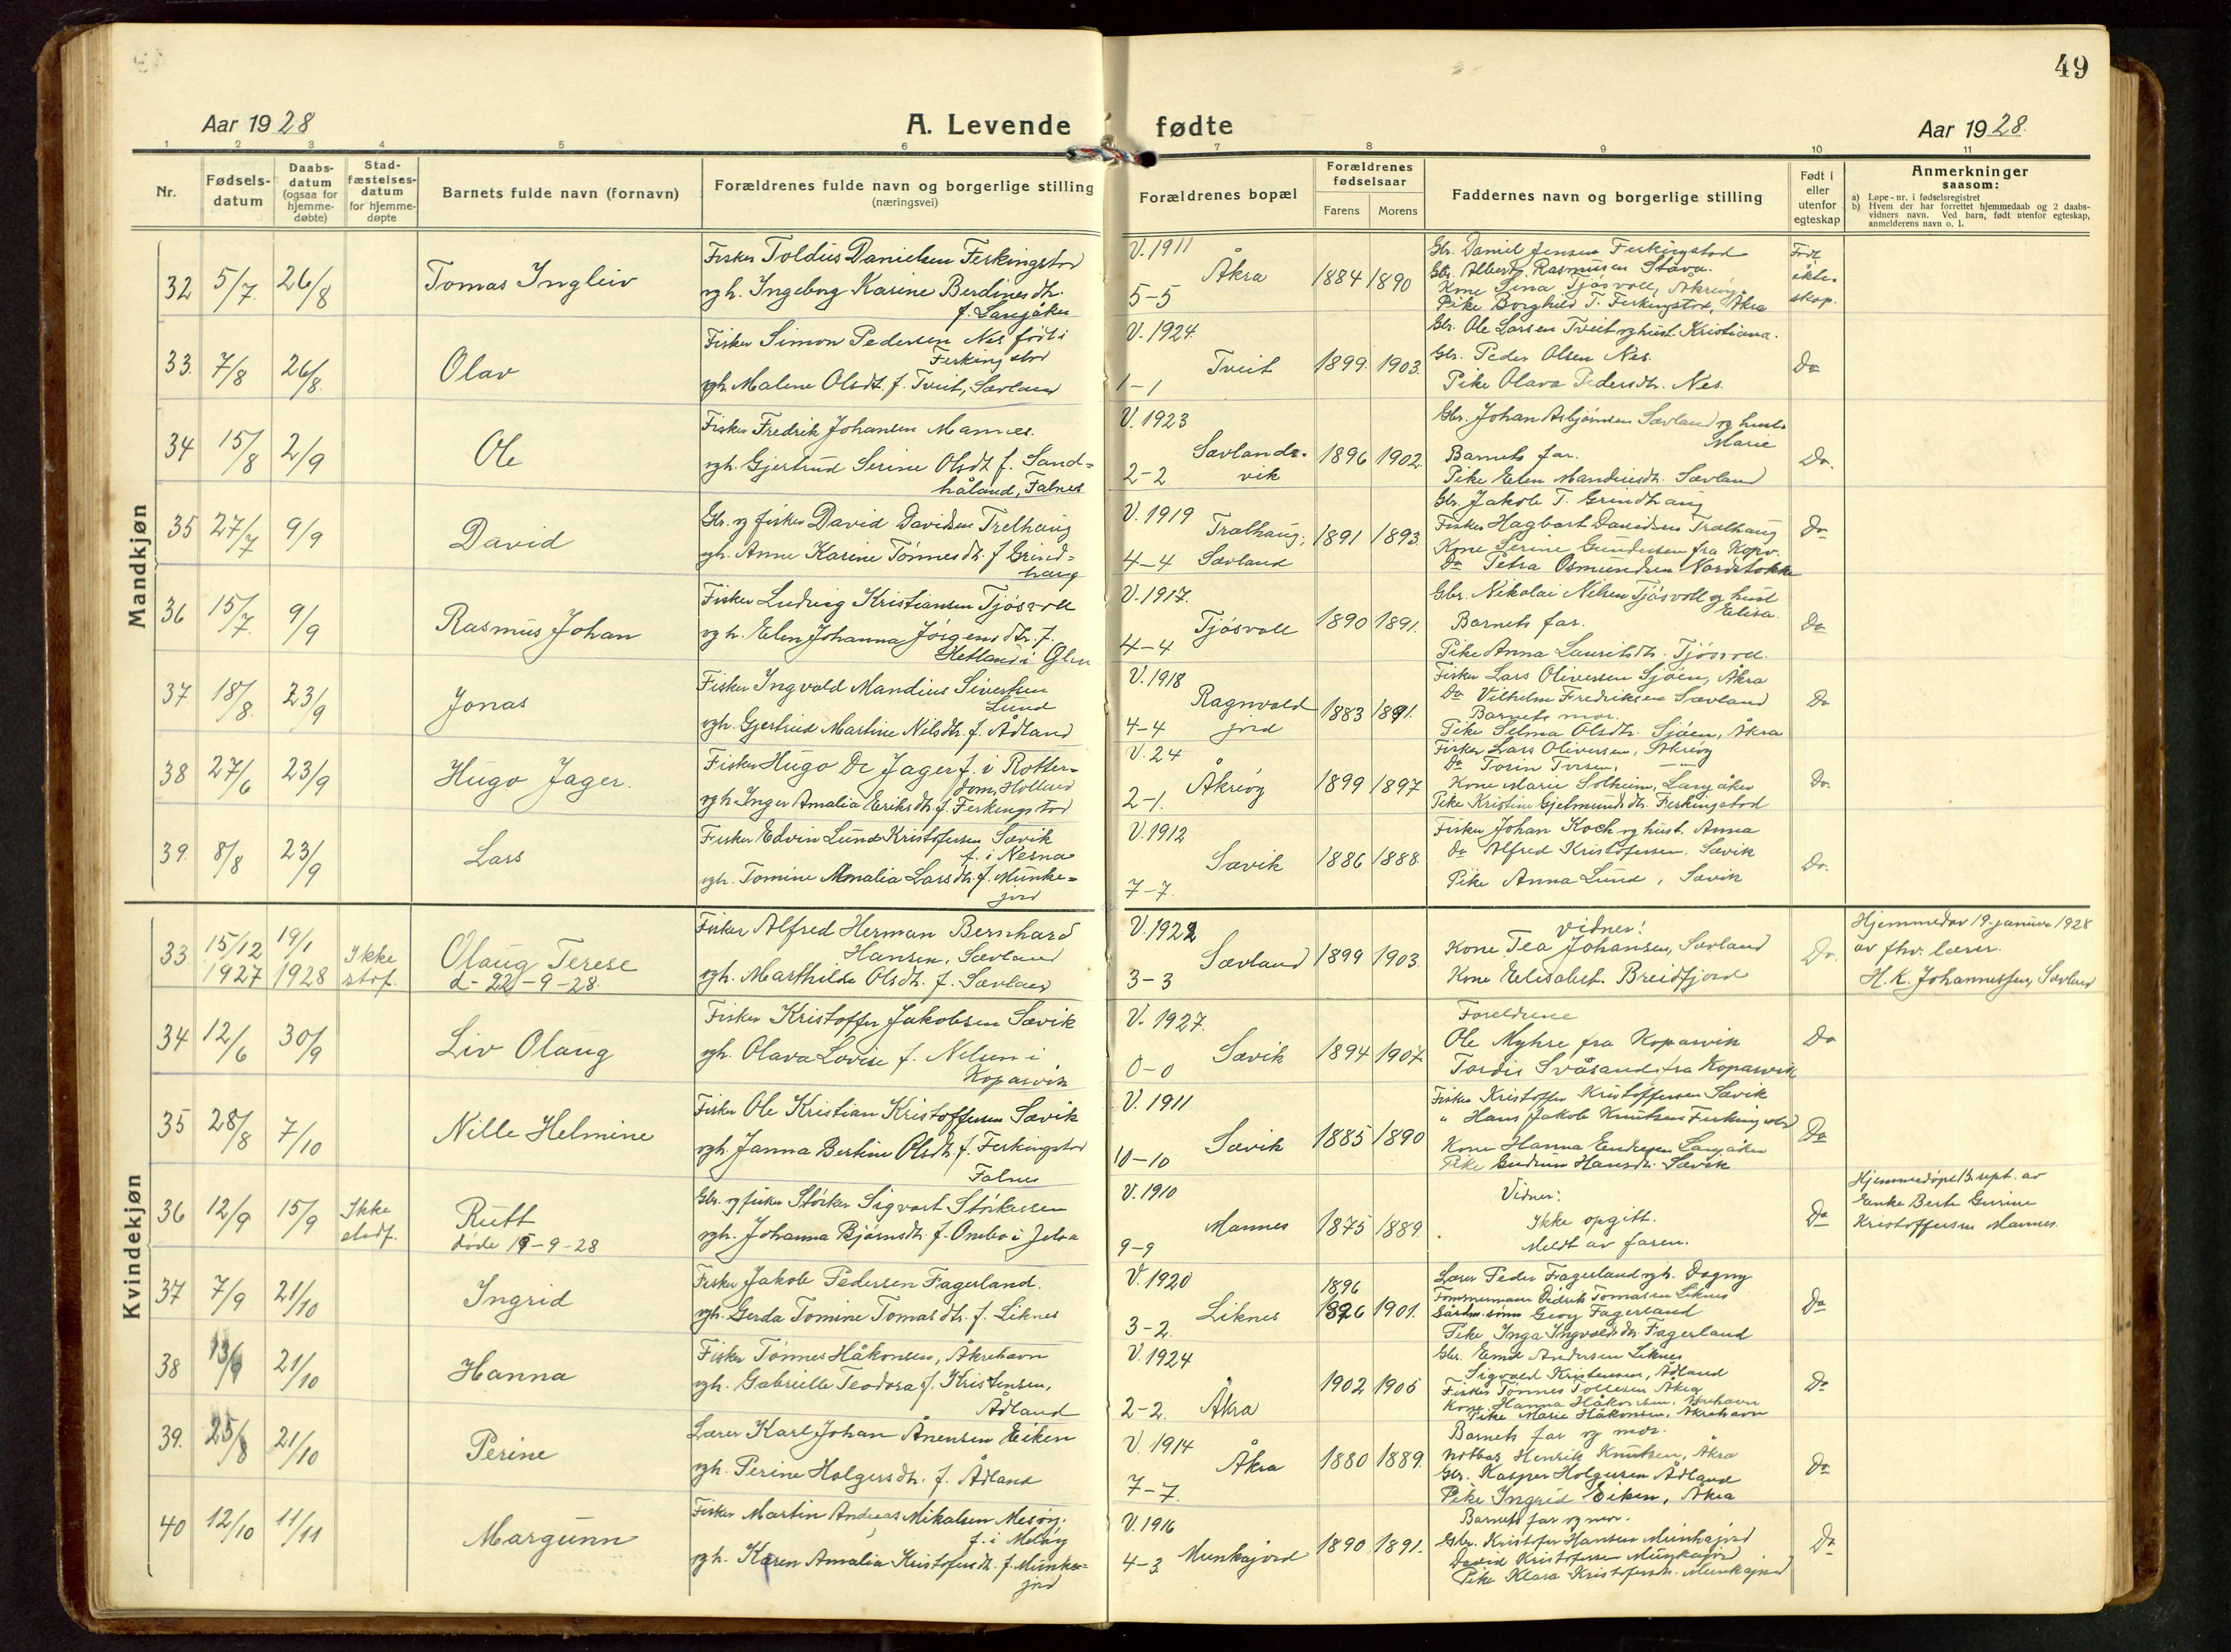 49
Aar 1928
A. Levende fødte
Aar 1928.
1 2 3 4 5 6 7 8 9 10 11
Nr.
Fødsels-datum
Daabs-datum (ogsaa for hjemme-døbte)
Stad-fæstelses-datum for hjemme-døpte
Barnets fulde navn (fornavn)
Forældrenes fulde navn og borgerlige stilling
(næringsvei)
Forældrenes bopæl
Forældrenes fødselsaar
Farens Morens
Faddernes navn og borgerlige stilling
Født i eller utenfor egteskap
Anmerkninger
saasom:
a) Løpe-nr. i fødselsregistret
b) Hvem der har forrettet hjemmedaab og 2 daabs-
vidners navn. Ved barn, født utenfor egteskap,
anmelderens navn o. l.
Mandkjøn
32 5/7 26/8 Tomas Ingleiv
Fisker Toldius Danielsen Ferkingstad
og h. Ingeborg Karine Berdinesdtr.
f. Langåker
V. 1911
Åkra
5-5
1884 1890
Gbr. Daniel Jensen Ferkingstad
Gbr. Albert Rasmussen Stava.
Kone Sina Tjøsvoll, Åkrehøy
Pike Borghild T. Ferkingstad, Åkra
Født
ekte-
skap.
33. 7/8 26/8. Olav
Fisker Simon Pedersen Nes født i
Ferkingstad
og h. Malene Olsdt. f. Tveit, Sævland
V. 1924.
Tveit
1-1
1899. 1903.
Gbr. Ole Larsen Tveit og hust. Kristiana.
Gbr. Peder Olsen Nes.
Pike Olava Pedersdtr. Nes.
Do
34 15/8 2/9 Ole
Fisker Fredrik Johansen Mannes.
og h. Gjertrud Serine Olsdt f. Sand-
håland, Falnes
V. 1923
Sævlands-
vik
2-2
1896 1902.
Gbr. Johan Asbjørnsen Sævland og hust.
Marie
Barnets far.
Pike Elen Mandiusdtr. Sævland
Do.
35 27/7 9/9 David
Gbr. og fisker David Davidsen Trælhaug
og h. Anne Karine Tønnesdtr. f. Grind-
haug
V. 1919
Trælhaug,
4-4 Sævland
1891 1893.
Gbr. Jakob T. Grindhaug
Fisker Hagbart Davidsen Trælhaug
Kone Serine Gundersen fra Kopv.
Do Petra Osmundsen Nordstokke
Do
36 15/7. 9/9 Rasmus Johan
Fisker Ludvig Kristiansen Tjøsvoll
og h. Elen Johanna Jørgensdtr. f.
Hetland i
V. 1917.
Tjøsvoll
4-4
1890 1891.
Gbr. Nikolai Nilsen Tjøsvoll og hust
Elisa.
Barnets far.
Pike Anna Lauritsdtr. Tjøsvoll.
Do
37. 18/8. 23/9 Jonas
Fisker Ingvald Mandius Sivertsen
Lund
og h. Gjertrud Martine Nilsdtr. f. Ådland
V. 1918
Ragnvald
jord
4-4
1883 1891.
Fisker Lars Oliversen Sjøen, Åkra
Do Vilhelm Fredriksen Sævland
Barnets mor.
Pike Selma Olsdtr. Sjøen, Åkra
Do
38 27/6 23/9 Hugo Jager.
Fisker Hugo De Jager f. i Rotter-
dam, Holland
og h. Inger Amalia Eriksdtr. f. Ferkingstad
V. 24
Åkrehøy
2-1.
1899 1897
Fisker Lars Oliversen, Åkrehøy
Kone Marie Solheim, Langåker
Pike Kristine Gjelmundsdtr. Ferkingstad
Do.
39. 8/8 23/9 Lars
Fisker Edvin Lund Kristofersen Sævik
f. i Nesna
og h. Tomine Amalia Larsdtr. f. Munke-
jord
V. 1912
Sævik
7-7.
1886 1888
Fisker Johan Koch og hust. Anna
Do Alfred Kristofersen. Sævik
Pike Anna Lund, Sævik
Do.
Kvindekjøn
33. 15/12 1927 19/1 1928 Ikke stdf. Olaug Terese
d- 22-9-28.
Fisker Alfred Herman Bernhard
Hansen, Sævland
og h. Marthilde Olsdtr. f. Sævland
V. 1922
Sævland
3-3
1899 1903.
vidner:
Kone Tea Johansen, Sævland
Kone Elisabet Breidfjord
Do.
Hjemmedøv 19. januar 1928
av fhv. lærer.
H. K. Johannessen, Sævland
34 12/6 30/9 Liv Olaug
Fisker Kristoffer Jakobsen Sævik
og h. Olava Lovise f. Nelsen i
Kopervik
V. 1927.
Sævik
0-0
1894 1907
Foreldrene
Ole Myhre fra Kopervik
Tordis Svåsand fra Kopervik
Do
35 28/8 7/10 Nille Helmine
Fisker Ole Kristian Kristoffersen Sævik
og h. Janna Bertine Olsdtr. f. Ferkingstad
Falnes
V. 1911
Sævik
10-10
1885 1890
Fisker Kristoffer Kristoffersen Sævik
" Hans Jakob Knutsen Ferkingstad
Kone Hanna Endresen Langåker
Pike Gudrun Hansdtr. Sævik
Do
36 12/9 15/9 Ikke stdf. Rutt
døde 15-9-28
Gbr. og fisker Størker Sigvart Størkersen
og h. Johanna Bjørnsdtr. f. Ombo i Jelsa
V. 1910
Mannes
9-9
1875 1889.
Vidner:
Ikke opgitt.
Meldt av faren.
Do
Hjemmedøpt 13. sept. av
Enke Berte Gurine
Kristoffersen Mannes.
37 7/9 21/10 Ingrid
Fisker Jakob Pedersen Fagerland.
og h. Gerda Tomine Tomasdtr. f. Liknes
V. 1920
Liknes
3-2.
1896
1896 1901.
Lærer Peder Fagerland og h. Dagny
Tømmermann Didrik Tomasen Liknes
Gårdm. sønn Georg Fagerland
Pike Inga Ingvaldsdtr. Fagerland
Do
38 13/9 21/10 Hanna
Fisker Tønnes Håkonsen, Åkrehavn
og h. Gabrielle Teodora f. Kristensen,
Ådland
V. 1924
2-2. Åkra
1902 1905
Gbr. Emil Andersen Liknes
Sigvald Kristensen, Ådland
Fisker Tønnes Tollesen Åkra
Kone Hanna Håkonsen. Åkrehavn
Pike Marie Håkonsen, Åkrehavn
Do
39. 25/8 21/10 Perine
Lærer Karl Johan Ånensen Eiken
og h. Perine Holgersdtr. f. Ådland
V. 1914
Åkra
7-7.
1880 1889.
Barnets far og mor.
Notbas Henrik Knutsen, Åkra
Gbr. Kasper Holgersen Ådland
Pike Ingrid Eiken, Åkra
Do
40 12/10 11/11 Margunn
Fisker Martin Andreas Mikalsen Mesøy.
f. i Meløy
og h. Karen Amalia Kristofersdtr. f. Munke-
jord
V. 1916
4-3 Munkajord
1890 1891.
Barnets far og mor.
Gbr. Kristofer Hansen Munkajord
David Kristofersen Munkajord
Pike Klara Kristofersdtr. Munkajord
Do